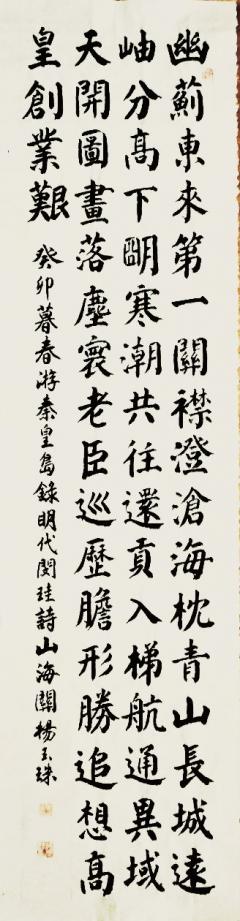 幽薊東來第一關襟澄滄海枕青山長城遠
岫分高下朙寒潮共往還貢入梯航通異域
天開圖畫落塵寰老臣巡歷瞻形勝追想高
皇創業艱
癸卯暮春游秦皇島錄明代閔珪詩山海關楊玉珠